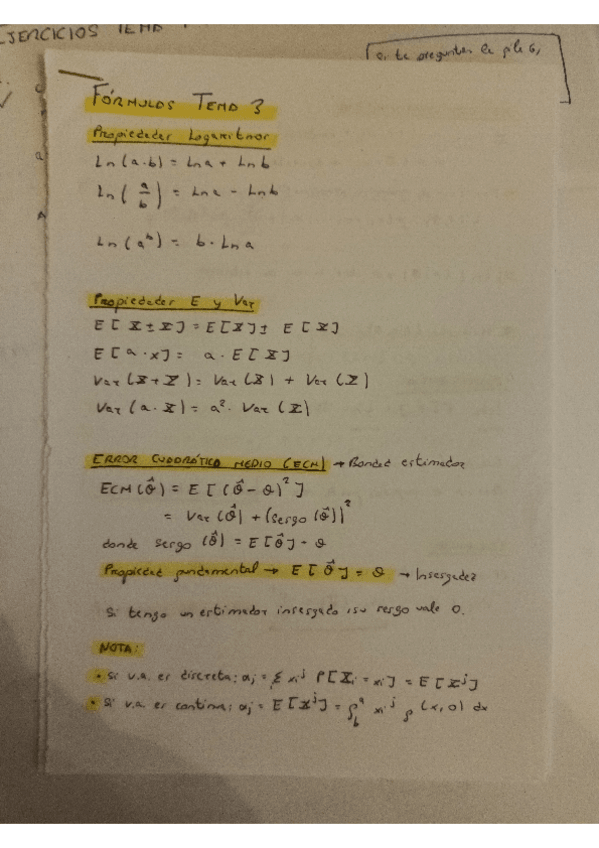 EJERCICIOS TEMA
o te preguntan la
FÓRMULAS TEMA 3
Propiedades Logaritmos
Ln(a·b) = Lna + Lnb
Ln(a/b) = Lna - Lnb
Ln(aᵇ) = b·Lna
Propiedades E y Var
E[X±X] = E[X] ± E[X]
E[a·x] = a·E[X]
Var(X+X) = Var(X) + Var(X)
Var(a·X) = a²·Var(X)
ERROR CUADRÁTICO MEDIO (ECM) → Bondad estimador
ECM(θ̂) = E[(θ̂-θ)²]
= Var(θ̂) + (sesgo(θ̂))²
donde sesgo(θ̂) = E[θ̂] - θ
Propiedad fundamental → E[θ̂] = θ → Insesgadez
Si tengo un estimador insesgado su sesgo vale 0.
NOTA:
• Si v.a. es discreta: αj = Σ xiʲ P[Xi = xi] = E[Xʲ]
• Si v.a. es continua: αj = E[Xʲ] = ∫ᵇᵃ xiʲ f(x,θ) dx